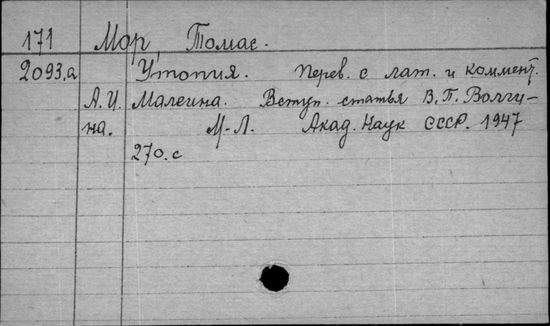 171 Мор, Томас.
2093.а Утопия. Перев. с лат. и коммент.
А.И. Малеина. Вступ. статья В.П. Волги-
на. М-Л. Акад. Наук СССР. 1947
270.с